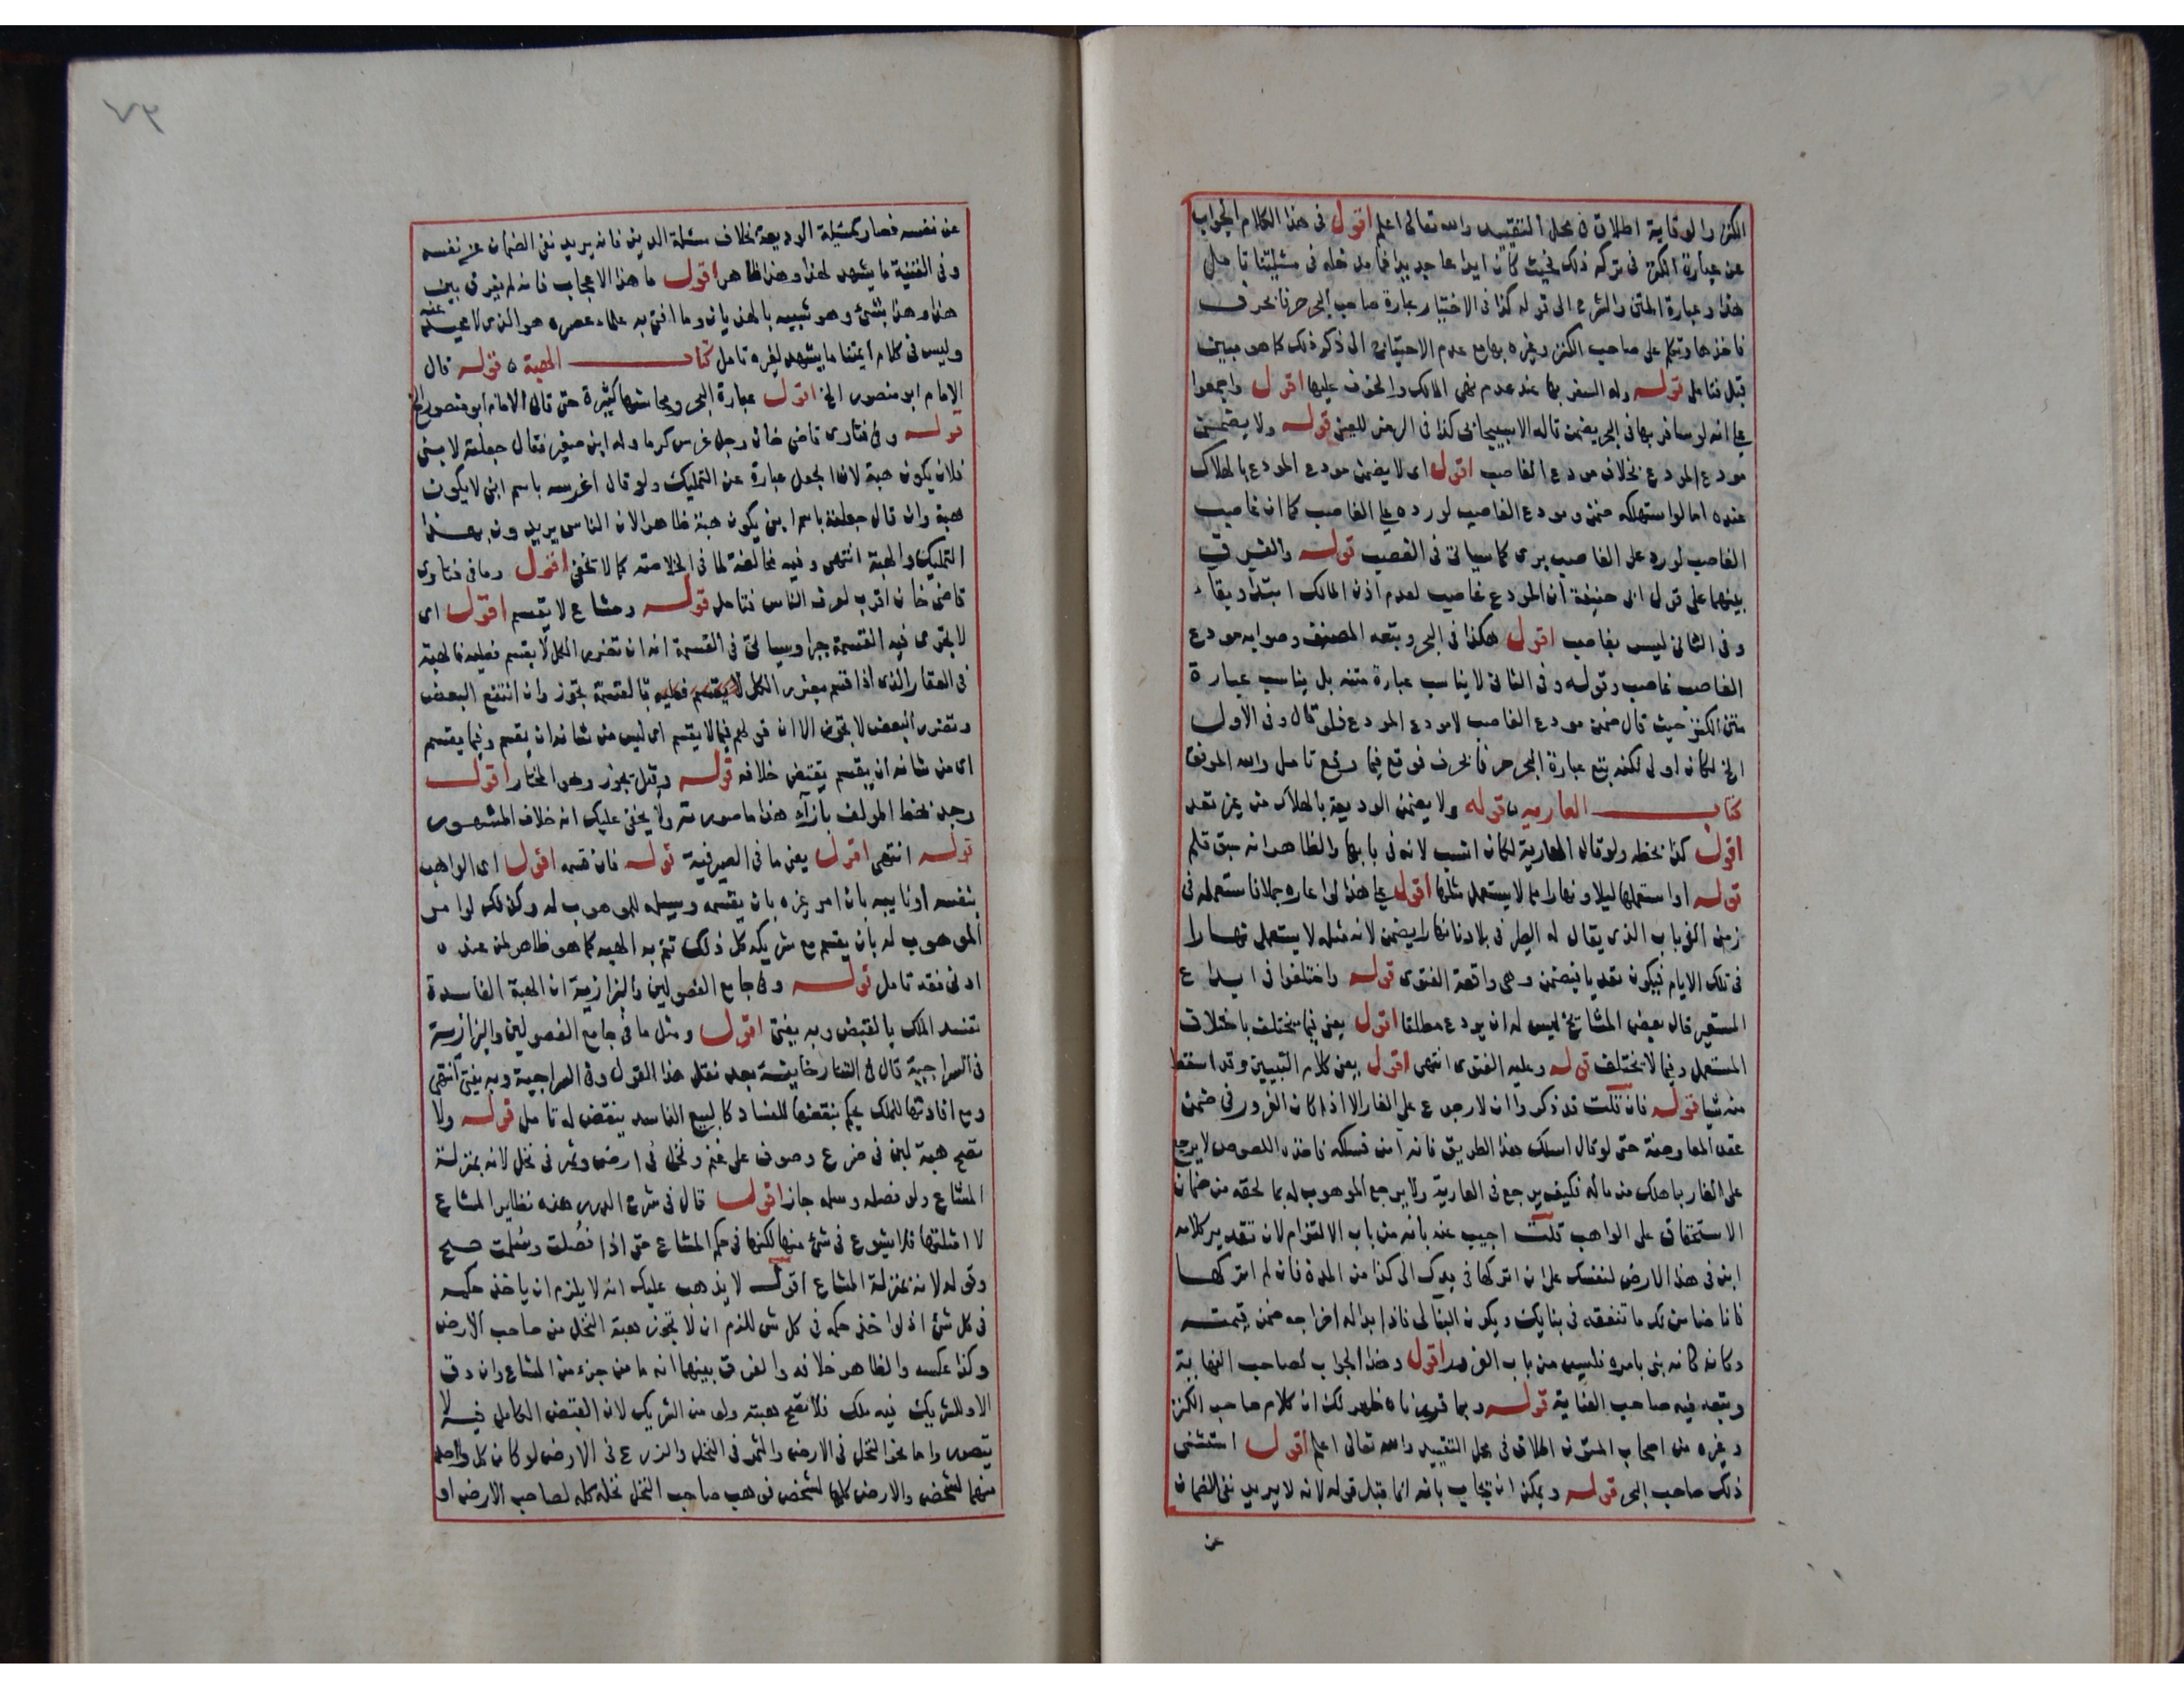 الكنز والوقاية اطلاق في محل التقييد والله تعالى اعلم اقول في هذا الكلام الجواب
عن عبارة الكنز في تركه ذلك بحيث كان ايدا عا جديدا فما مدخله في مسئلتنا تامل
هذا وعبارة المتن والشرح الى قوله كذا في الاختيار عبارة صاحب البحر حرفا بحرف
فاخذها وتكلم على صاحب الكنز وغيره بها مع عدم الاحتياج الى ذكر ذلك كما هو مبين
قبل فتامل قوله وله السفر بها عند عدم نهى المالك والخوف عليها اقول واجمعوا
على انه لو سافر بها في البحر يضمن قاله الاسبيجابى كذا في الرمز للعينى قوله ولا يضمن
مودع المودع بخلاف مودع الغاصب اقول اى لا يضمن مودع المودع بالهلاك
عنده اما لو استهلكه ضمن ومودع الغاصب لو رده على الغاصب كما ان غاصب
الغاصب لو رد على الغاصب برى كما سياتى في الغصب قوله والفرق
بينهما على قول ابى حنيفة ان المودع غاصب لعدم اذن المالك ابتداء وبقاء
وفي الثانى ليس بغاصب اقول هكذا في البحر وتبعه المصنف وصوابه مودع
الغاصب غاصب وقوله وفي الثانى لا يناسب عبارة متنه بل يناسب عبارة
متن الكنز حيث قال ضمن مودع الغاصب لا مودع المودع فلو قال وفي الاول
الخ لكان اولى لكنه تبع عبارة البحر حرفا بحرف فوقع فيما وقع تامل والله الموفق
كتاب العارية قوله ولا يضمن الوديعة بالهلاك من غير تعد
اقول كذا بخطه ولو قال العارية لكان انسب لانه في بابها والظاهر انه سبق قلم
قوله او استعملها ليلا ونهارا مما لا يستعمل مثلها اقول على هذا لو اعاره جملا فاستعمله في
زمن الذباب الذى يقال له الطر في بلادنا نهارا يضمن لانه مثله لا يستعمل نهارا
في تلك الايام فيكون تعديا فيضمن وهى واقعة الفتوى قوله واختلفوا في ايداع
المستعير قال بعض المشايخ ليس له ان يودع مطلقا اقول يعنى فيما يختلف باختلاف
المستعمل وفيما لا يختلف قوله وعليه الفتوى انتهى اقول يعنى كلام التبيين وقد اسقط
منه شيا قوله فان قلت قد ذكروا ان لا رجوع على الغار الا اذا كان الغرور في ضمن
عقد المعاوضة حتى لو قال اسلك هذا الطريق فانه امن فسلكه فاخذه اللصوص لا يرجع
على الغار بما هلك من ماله فكيف يرجع في العارية ولا يرجع الموهوب له بما لحقه من ضمان
الاستحقاق على الواهب قلت اجيب عنه بانه من باب الالتزام لان تقدير كلامه
ابن في هذا الارض لنفسك على ان اتركها في يدك الى كذا من المدة فان لم اتركها
فانا ضامن لك ما تنفقه في بنايك ويكون البنا لى فاذا بدا له اخراجه ضمن قيمته
وكانه كانه بنى بامره فليس من باب الغرور اقول وهذا الجواب لصاحب النهاية
وتبعه فيه صاحب العناية قوله وبما قررناه ظهر لك ان كلام صاحب الكنز
وغيره من اصحاب المتون اطلاق في محل التقييد والله تعالى اعلم اقول استثنى
ذلك صاحب البحر قوله ويمكن ان يجاب بانه انما قبل قوله لانه لا يريد نفى الضمان
عن
٩٧
عن نفسه فصار كمسئلة الوديعة بخلاف مسئلة الدين فانه يريد نفى الضمان عن نفسه
وفي القنية ما يشهد لهذا وهذا ظاهر اقول ما هذا الا عجاب فانه لم يفرق بين
هذا وهذا بشئ وهو شبيه بالهذيان وما افتى به علماء عصره هو الذى لا محيد عنه
وليس في كلام ايمتنا ما يشهد لغيره تامل كتاب الهبة قوله قال
الامام ابو منصور الخ اقول عبارة البحر ومحاسنها كثيرة حتى قال الامام ابو منصور الخ
قوله وفي فتاوى قاضى خان رجل غرس كرما وله ابن صغير فقال جعلته لابنى
فلان يكون هبة لان الجعل عبارة عن التمليك ولو قال اغرسه باسم ابنى لا يكون
هبة وان قال جعلته باسم ابنى يكون هبة ظاهرا لان الناس يريدون بهذا
التمليك والهبة انتهى وفيه مخالفة لما في الخلاصة كما لا تخفى اقول وما في فتاوى
قاضى خان اقرب لعرف الناس فتامل قوله ومشاع لا يقسم اقول اى
لا يجرى فيه القسمة جبرا وسياتى في القسمة انه ان تضرر الكل لا يقسم فعليه فالهبة
في العقار الذى اذا قسم يتضرر الكل لا يقسم فعليه فالقسمة تجوز وان انتفع البعض
وتضرر البعض لا تجوز الا ان قولهم فيما لا يقسم اى ليس من شانه ان يقسم وفيما يقسم
اى من شانه ان يقسم يقتضى خلافه قوله وقيل يجوز وهو المختار اقول
وجد بخط المولف بازاء هذا ما صورته ولا يخفى عليك انه خلاف المشهور
قوله انتهى اقول يعنى ما في الصيرفية قوله فان قسمه اقول اى الواهب
بنفسه او نايبه بان امر غيره بان يقسمه ويسلمه للموهوب له وكذلك لو امر
الموهوب له بان يقسم مع شريكه كل ذلك تتم به الهبه كما هو ظاهر لمن عنده
ادنى فقه تامل قوله وفي جامع الفصولين والبزازية ان الهبة الفاسدة
تفسد الملك بالقبض وبه يفتى اقول ومثل ما في جامع الفصولين والبزازية
في السراجية قال في التتارخانية بعد نقل هذا القول وفي السراجية وبه يفتى انتهى
ومع افادتها للملك يحكم بنقضها للفساد كالبيع الفاسد ينقض له تامل قوله ولا
تصح هبة لبن في ضرع وصوف على غنم ونخل في ارض وتمر في نخل لانه بمنزلة
المشاع ولو فصله وسلمه جاز اقول قال في شرح الدرر هذه نظاير المشاع
لا امثلتها فلا شيوع في شئ منها لكنها في حكم المشاع حتى اذا فصلت وسلمت صح
وقوله لانه بمنزلة المشاع اقول لا يذهب عليك انه لا يلزم ان ياخذ حكمه
في كل شئ اذ لو اخذ حكمه في كل شى للزم ان لا تجوز هبة النخل من صاحب الارض
وكذا عكسه والظاهر خلافه والفرق بينهما انه ما من جزء من المشاع وان دق
الا وللشريك فيه ملك فلا تصح هبته ولو من الشريك لان القبض الكامل فيه لا
يتصور واما نحو النخل في الارض والثمر في النخل والزرع في الارض لو كان كل واحد
منهما لشخص والارض كلها لشخص فوهب صاحب النخل نخله كله لصاحب الارض او